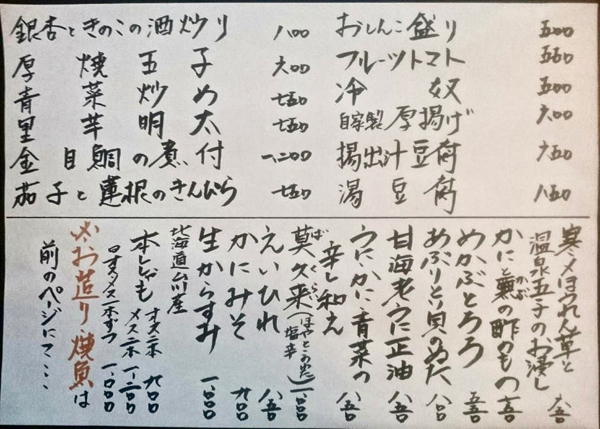 銀杏ときのこの酒炒り 八〇〇
厚焼玉子 六〇〇
青菜炒め 七五〇
里芋明太 七五〇
金目鯛の煮付 一、二〇〇
茄子と蓮根のきんぴら 七五〇
おしんこ盛り 五〇〇
フルーツトマト 五五〇
冷奴 五〇〇
自家製厚揚げ 六〇〇
揚出汁豆腐
湯豆腐 八五〇
寒〆ほうれん草と
温泉玉子のお浸し 八五〇
かにと蕪の酢のもの
めかぶとろろ 五五〇
あぶりとり貝のぬた 八〇〇
甘海老うに正油 八五〇
うにかに青菜の
辛し和え 八五〇
莫久来(ばくらい)(ほやとこのわた塩辛) 一、〇〇〇
えいひれ 八五〇
かにみそ 九〇〇
生からすみ 一、〇〇〇
北海道
本ししゃも オス二本 九〇〇
メス二本 一、二〇〇
オスメス一本ずつ 一、〇〇〇
※お造り、焼魚は
前のページにて・・・